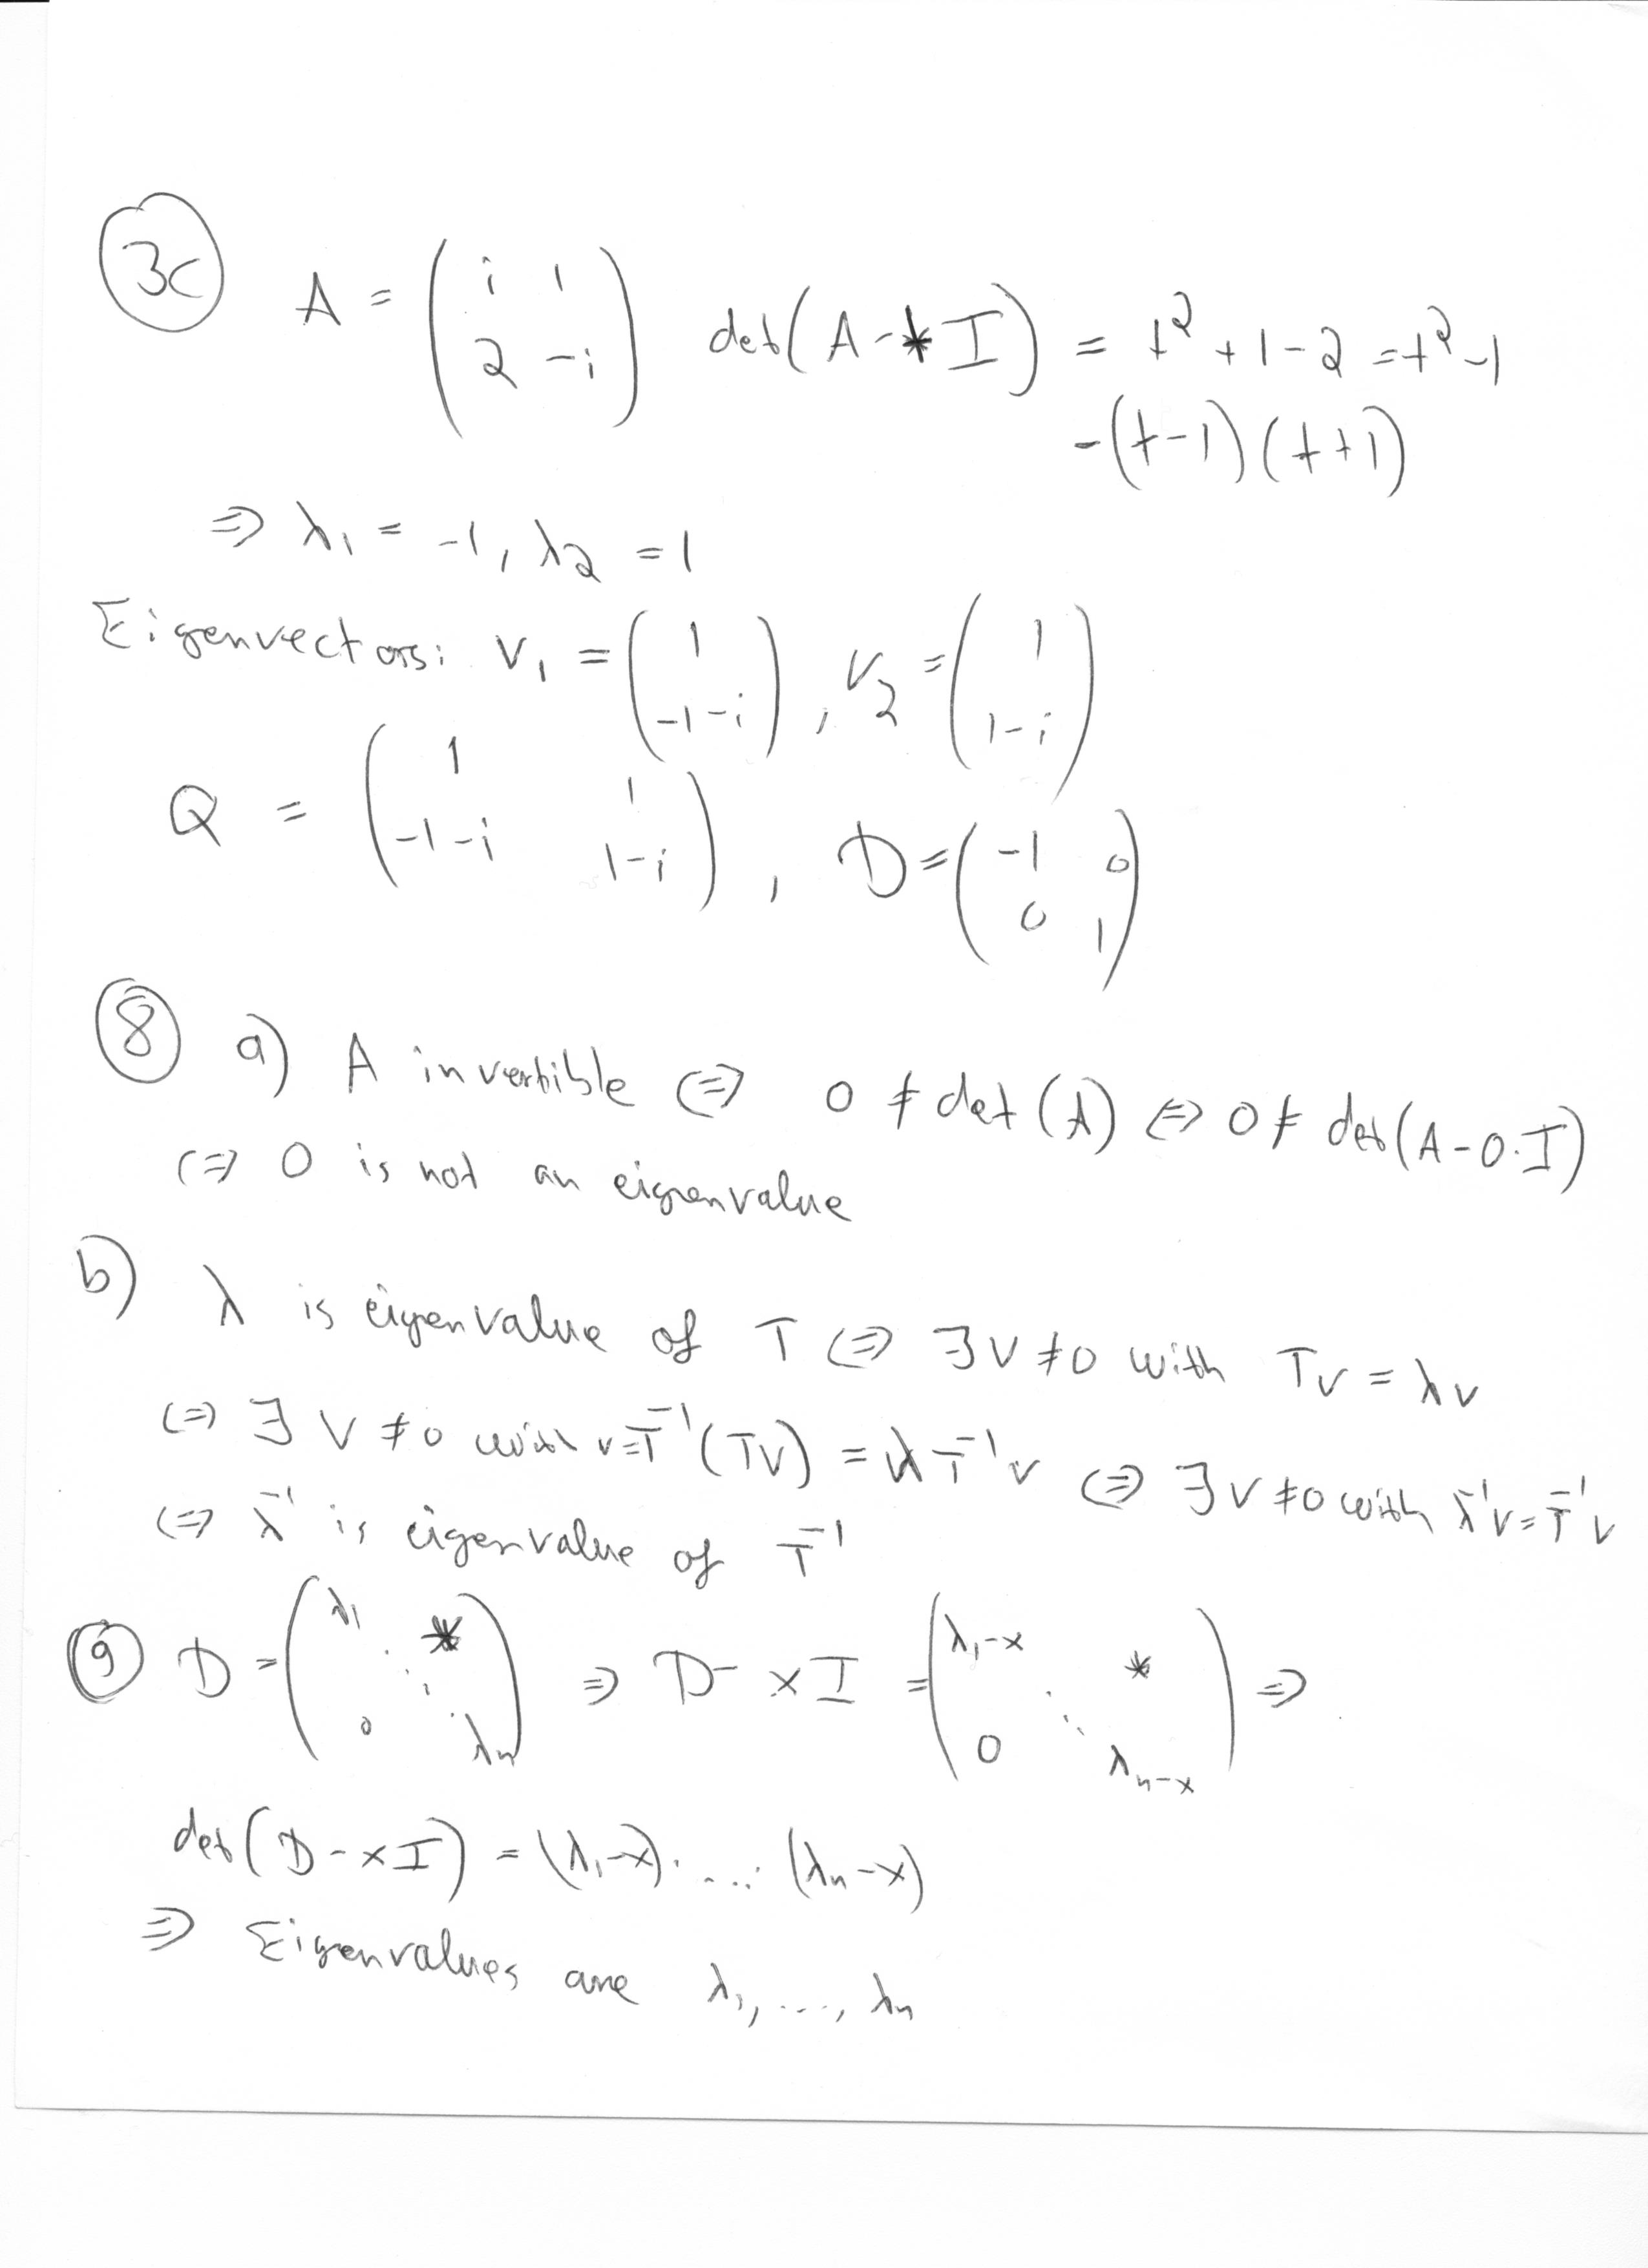 3c A = ( i 1 ; 2 -i ) det(A-tI) = t² + 1 - 2 = t² - 1
-(t-1)(t+1)
⇒ λ₁ = -1, λ₂ = 1
Eigenvectors: v₁ = ( 1 ; -1-i ), v₂ = ( 1 ; 1-i )
Q = ( 1 1 ; -1-i 1-i ), D = ( -1 0 ; 0 1 )
8 a) A invertible ⇔ 0 ≠ det(A) ⇔ 0 ≠ det(A-0·I)
⇔ 0 is not an eigenvalue
b) λ is eigenvalue of T ⇔ ∃v≠0 with Tv = λv
⇔ ∃ v≠0 with v=T⁻¹(Tv) = λT⁻¹v ⇔ ∃v≠0 with λ⁻¹v=T⁻¹v
⇔ λ⁻¹ is eigenvalue of T⁻¹
9 D = ( λ₁ * ; ⋱ ; 0 λn ) ⇒ D - xI = ( λ₁-x * ; ⋱ ; 0 λn-x ) ⇒
det(D-xI) = (λ₁-x)·...·(λn-x)
⇒ Eigenvalues are λ₁, ..., λn